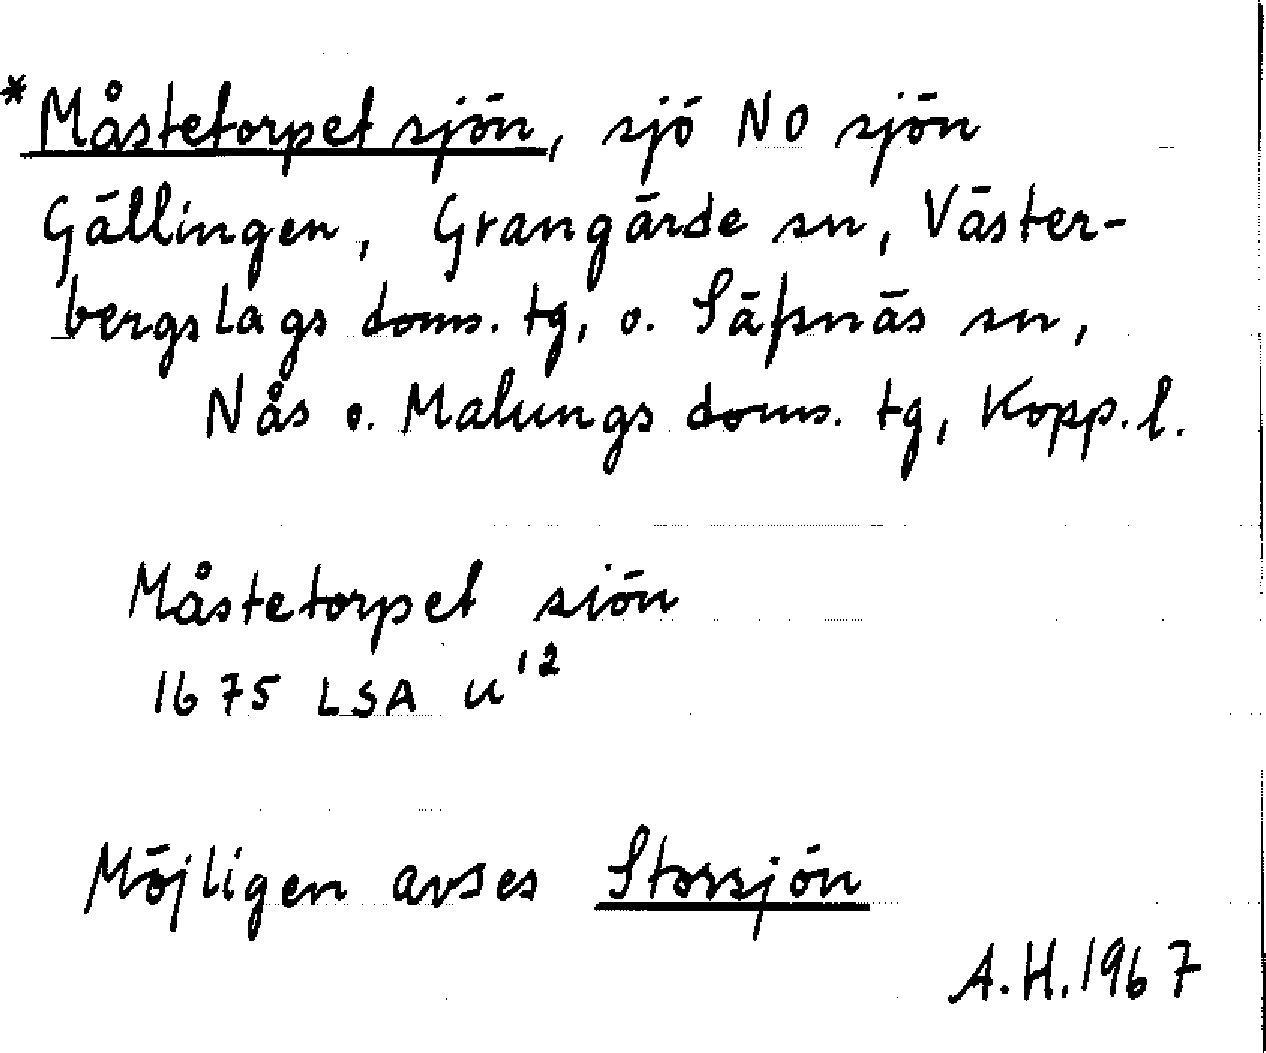 *Måstetorpet sjön, sjö NO sjön
Gällingen, Grangärde sn, Väster-
bergslags doms. tg, o. Säfsnäs sn,
Nås o. Malungs doms. tg, Kopp. l.
Måstetorpet siön
1675 LSA U¹²
Möjligen avses Storsjön
A.H. 1967